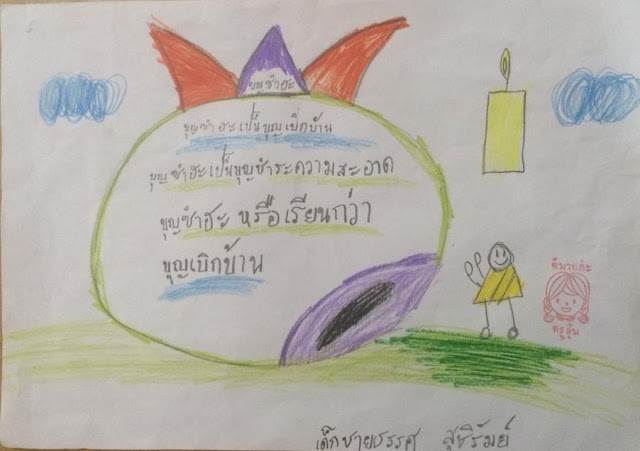 บุญซำฮะ
บุญซำฮะเป็นบุญเบิกบ้าน
บุญซำฮะเป็นบุญชำระความสะอาด
บุญซำฮะ หรือเรียนกว่า
บุญเบิกบ้าน
ดีมากค่ะ
เด็กชายธรรศ สุชิรัมย์